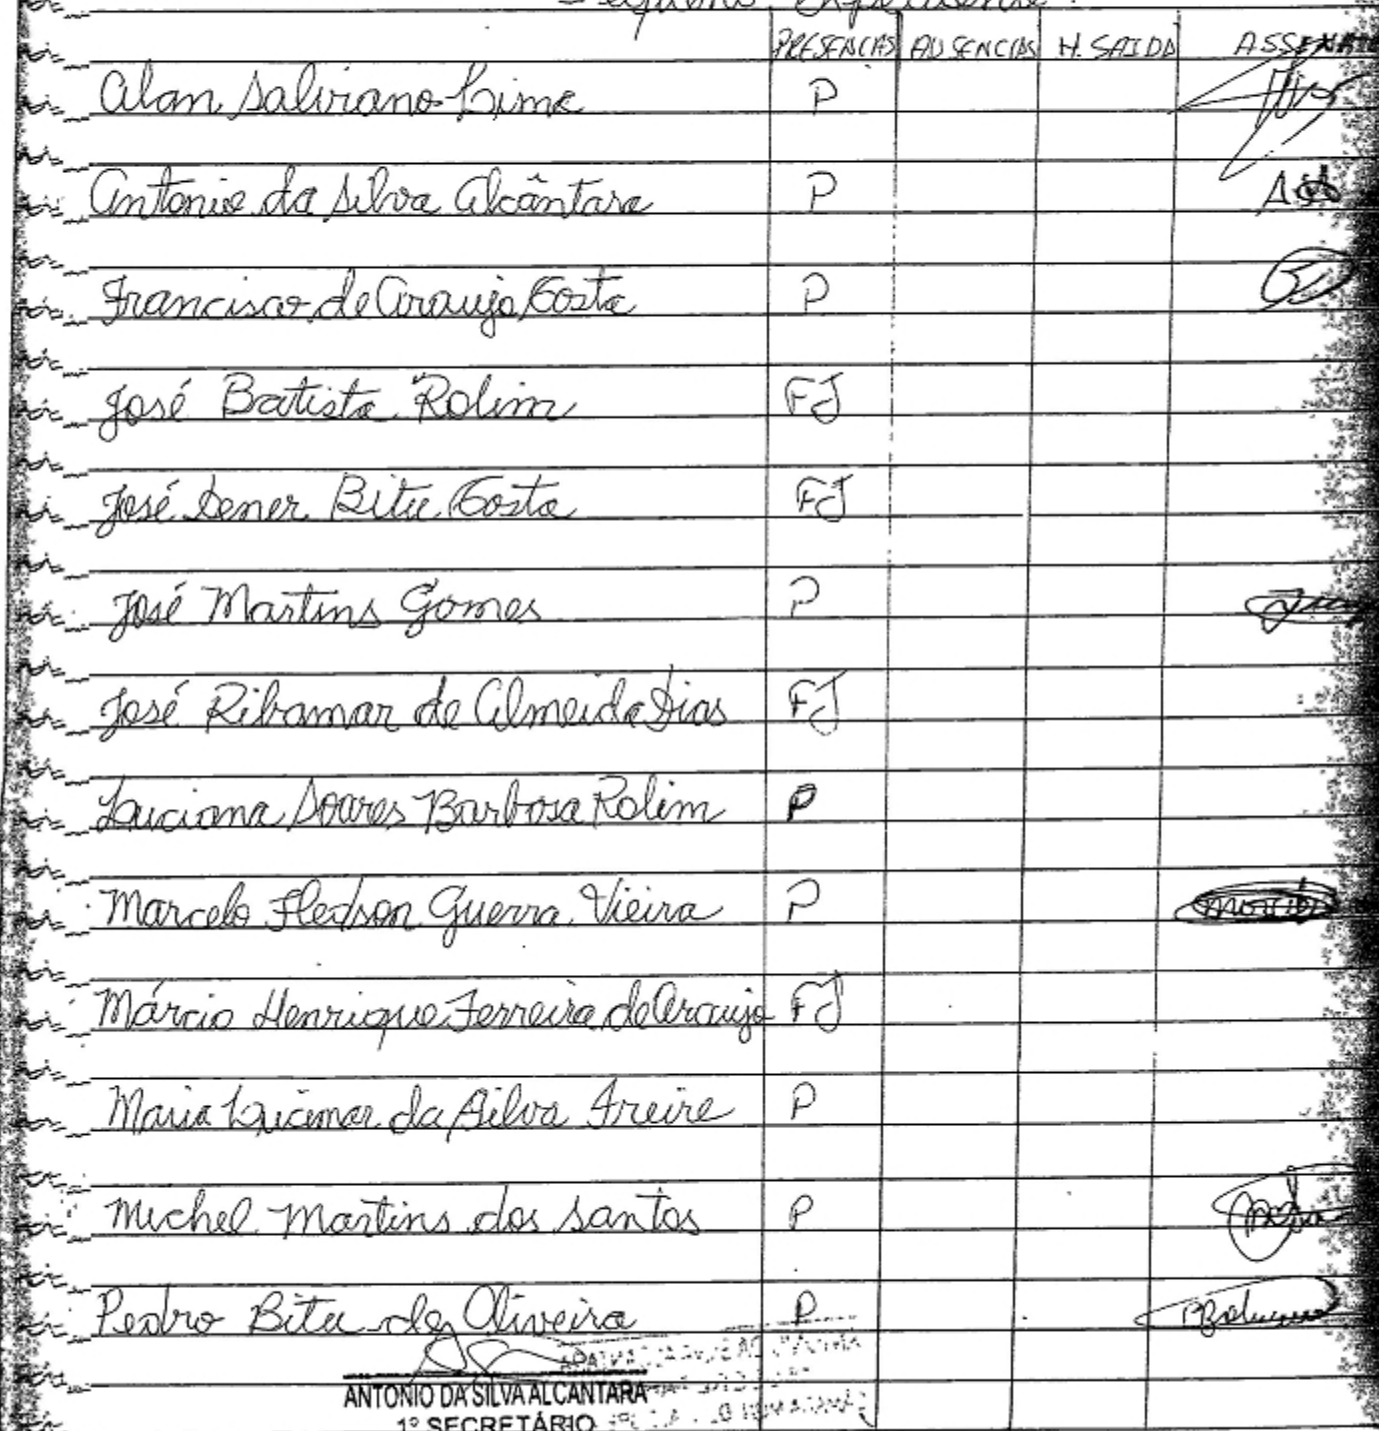 Pequeno Expediente.
PRESENCIAS AUSENCIAS H. SAIDA ASSINAT
Alan Salviano Lima P
Antonio da Silva Alcântara P
Francisco de Araujo Costa P
José Batista Rolim FJ
José Dener Bitu Costa FJ
José Martins Gomes P
José Ribamar de Almeida Dias FJ
Luciana Soares Barbosa Rolim P
Marcelo Fledson Guerra Vieira P
Márcio Henrique Ferreira de Araujo FJ
Maria Lucimar da Silva Freire P
Michel Martins dos Santos P
Pedro Bitu de Oliveira P
ANTONIO DA SILVA ALCANTARA
1º SECRETÁRIO